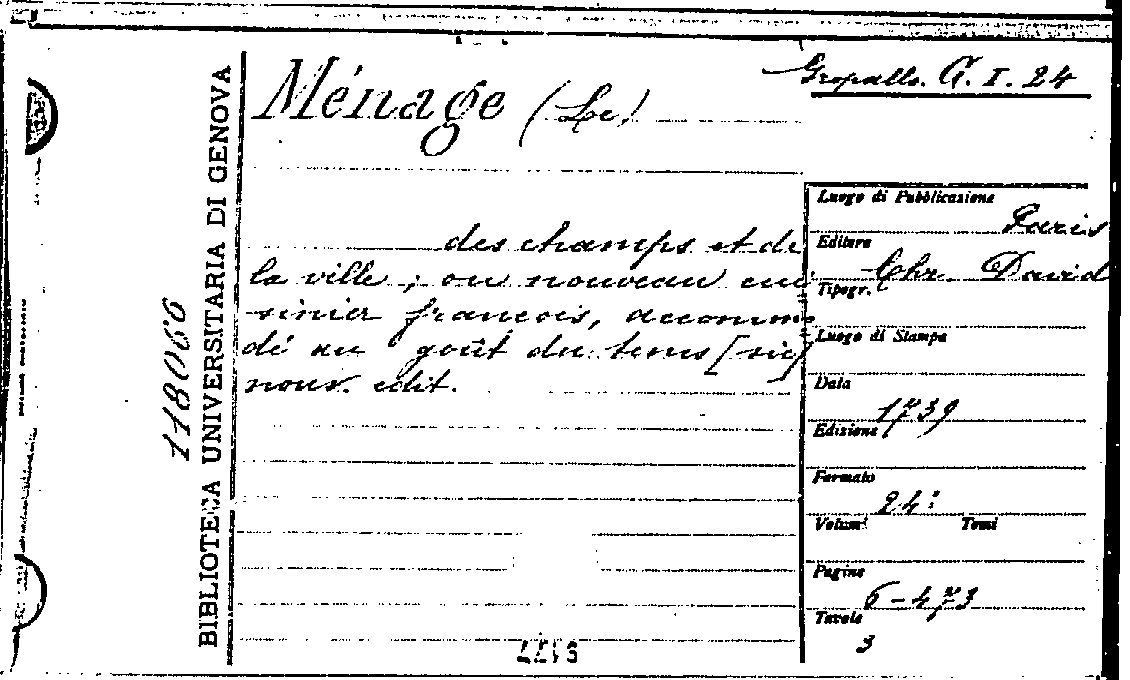 Gropallo. G. I. 24
Ménage (Le)
des champs et de
la ville ; ou nouveau cui
sinier francois, accomm
dé au goût du tems [sic]
nouv. edit.
BIBLIOTECA UNIVERSITARIA DI GENOVA
118066
Luogo di Pubblicazione
Paris
Editore
Chr. David
Tipogr.
Luogo di Stampa
Data
1739
Edizione
Formato
24°
Volumi Tomi
Pagine
6-473
Tavole
3